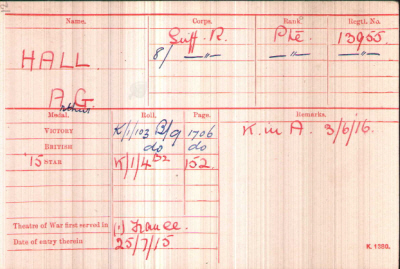 Name. Corps. Rank. Regtl. No.
HALL Suff. R. Pte. 13955.
8/ —"— —"— —"—
A.G.
Arthur
Medal. Roll. Page. Remarks.
VICTORY K/1/103 B/9 1706 K. in A. 3/6/16.
BRITISH do do
'15 STAR K/1/4 B2 152.
Theatre of War first served in (1) France.
Date of entry therein 25/7/15
K. 1380.